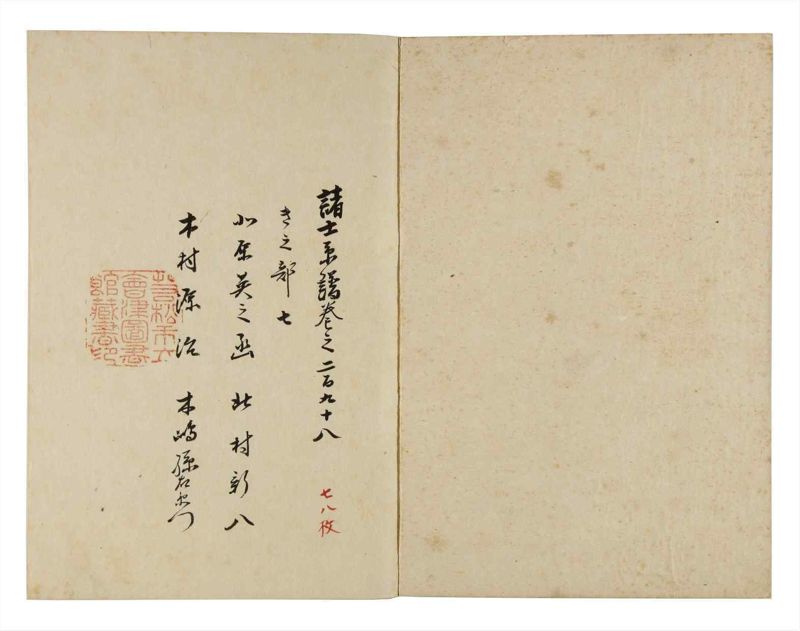 諸士系譜巻之二百九十八
七八枚
き之部 七
小原英之函 北村新八
木村源治 木嶋孫右衛門
若松市立
會津圖書
館藏書印